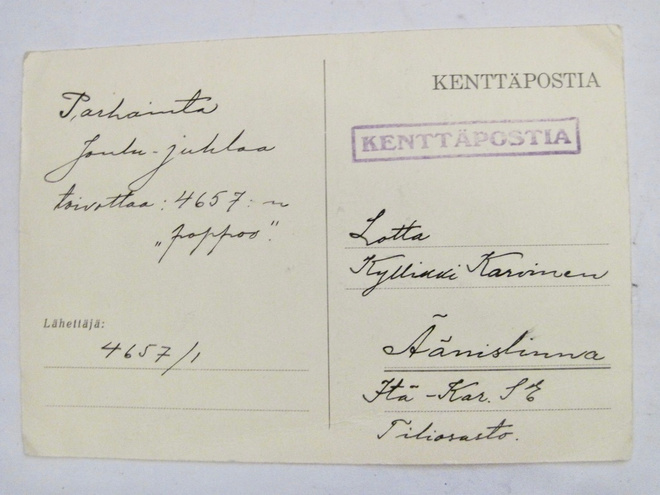 Parhainta
Joulu-juhlaa
toivottaa: 4657:n
"poppoo".
Lähettäjä:
4657/1
KENTTÄPOSTIA
KENTTÄPOSTIA
Lotta
Kyllikki Karvinen
Äänislinna
Itä-Kar. SE
Tiliosasto.